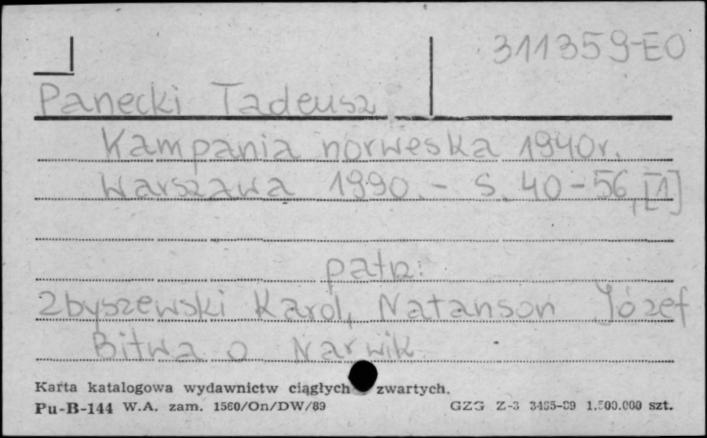 311359-EO
Panecki Tadeusz
Kampania norweska 1940r.
Warszawa 1990. - S. 40-56, [1]
patrz:
Zbyszewski Karol, Natanson Józef
Bitwa o Narwik
Karta katalogowa wydawnictw ciągłych zwartych.
Pu-B-144 W.A. zam. 1560/On/DW/89 GZG Z-3 3495-89 1.500.000 szt.